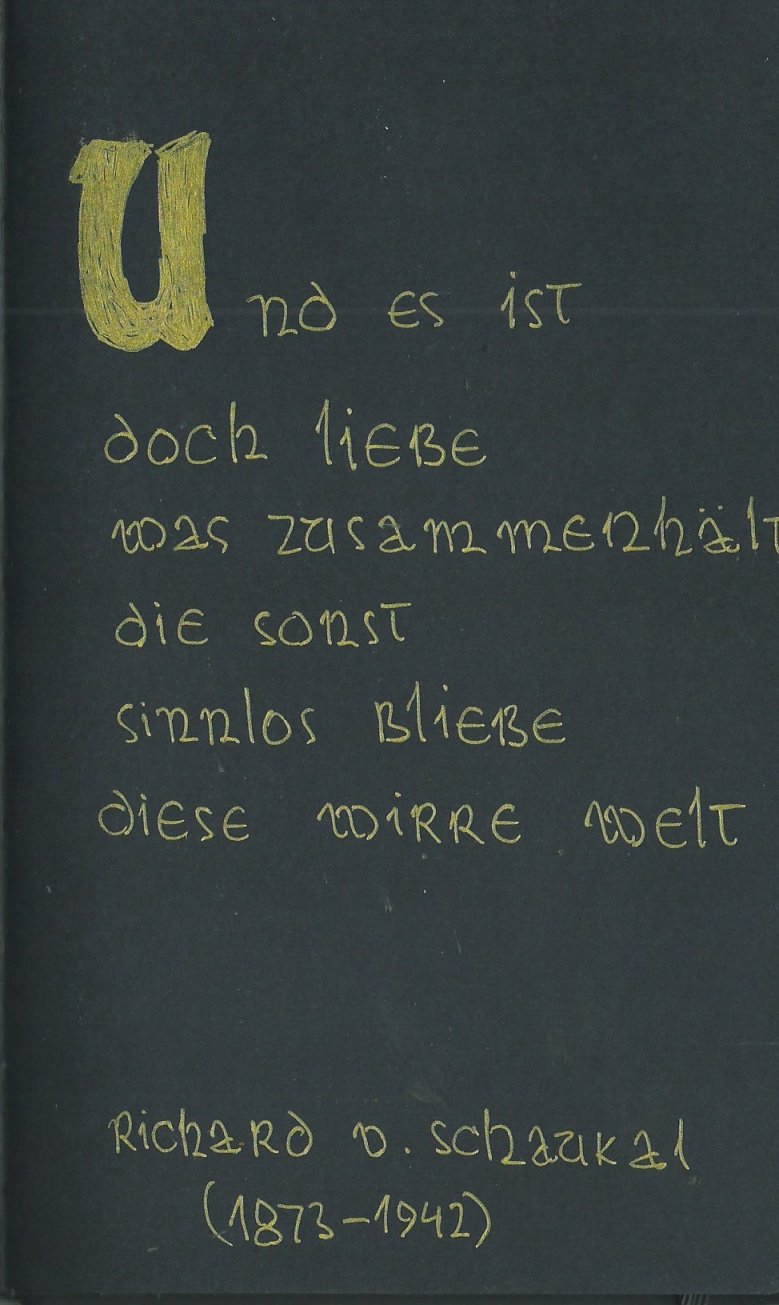 Und es ist
doch liebe
was zusammenhält
die sonst
sinnlos bliebe
diese wirre welt
Richard v. Schaukal
(1873–1942)